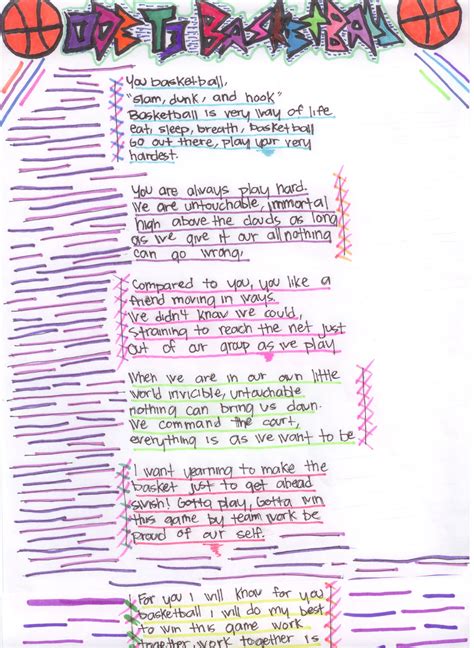 ODE TO BASKETBALL
You basketball,
"slam, dunk, and hook"
Basketball is very way of life
eat, sleep, breath, basketball
Go out there, play your very
hardest.
You are always play hard.
We are untouchable, immortal
high above the clouds as long
as we give it our all nothing
can go wrong.
Compared to you, you like a
friend moving in ways.
We didn't know we could,
straining to reach the net just
out of our group as we play
When we are in our own little
world invicible, untouchable
nothing can bring us down.
We command the court,
everything is as we want to be
I want yearning to make the
basket just to get ahead
swish! Gotta play, Gotta win
this game by team work be
proud of our self.
For you I will know for you
basketball I will do my best
to win this game work
together, work together is